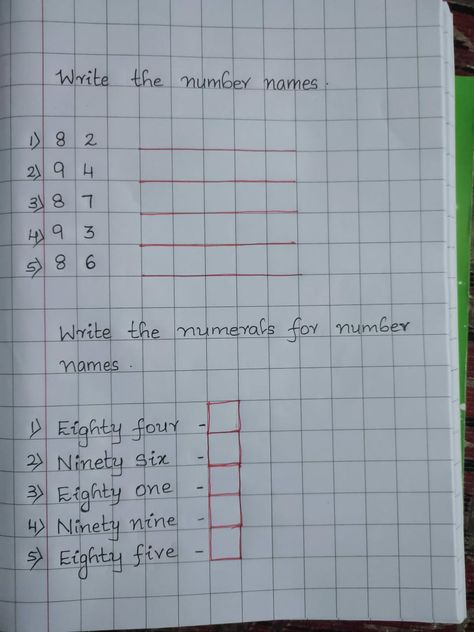 Write the number names.
1) 8 2
2) 9 4
3) 8 7
4) 9 3
5) 8 6
Write the numerals for number
names.
1) Eighty four -
2) Ninety six -
3) Eighty one -
4) Ninety nine -
5) Eighty five -